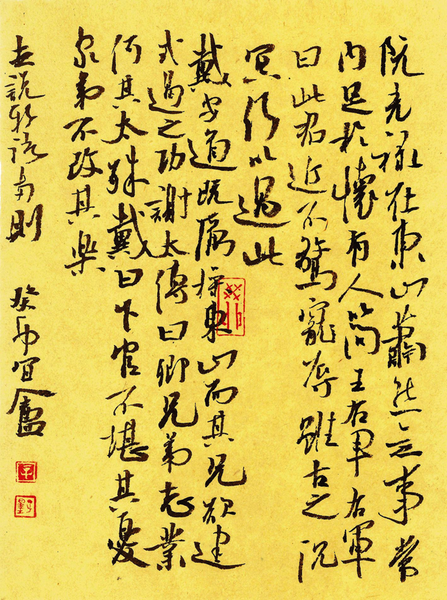 阮光祿在东山蕭然无事常
內足於懷有人问王右軍右軍
曰此君近不驚寵辱雖古之沉
冥何以過此
戴安道既厲操東山而其兄欲建
式遏之功謝太傅曰卿兄弟志業
何其太殊戴曰下官不堪其憂
家弟不改其樂
世說新語兩則
癸卯宜廬